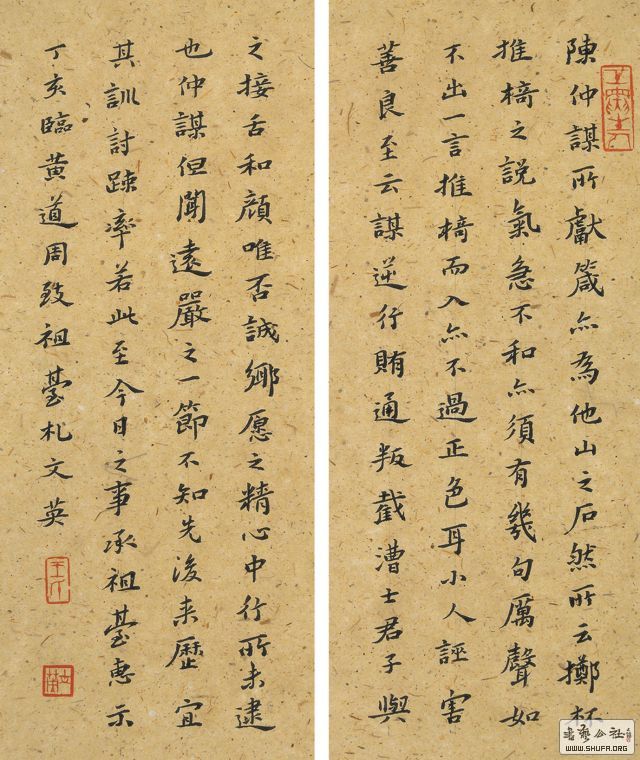 陳仲謀所獻箴亦為他山之石然所云擲杯
推椅之說氣急不和亦須有幾句厲聲如
不出一言推椅而入亦不過正色耳小人誣害
善良至云謀逆行賄通叛截漕士君子與
之接舌和顔唯否誠鄉愿之精心中行所未逮
也仲謀但聞遠嚴之一節不知先後来歷宜
其訓討疎率若此至今日之事承祖臺惠示
丁亥臨黄道周致祖臺札文英
書藝公社
WWW.SHUFA.ORG